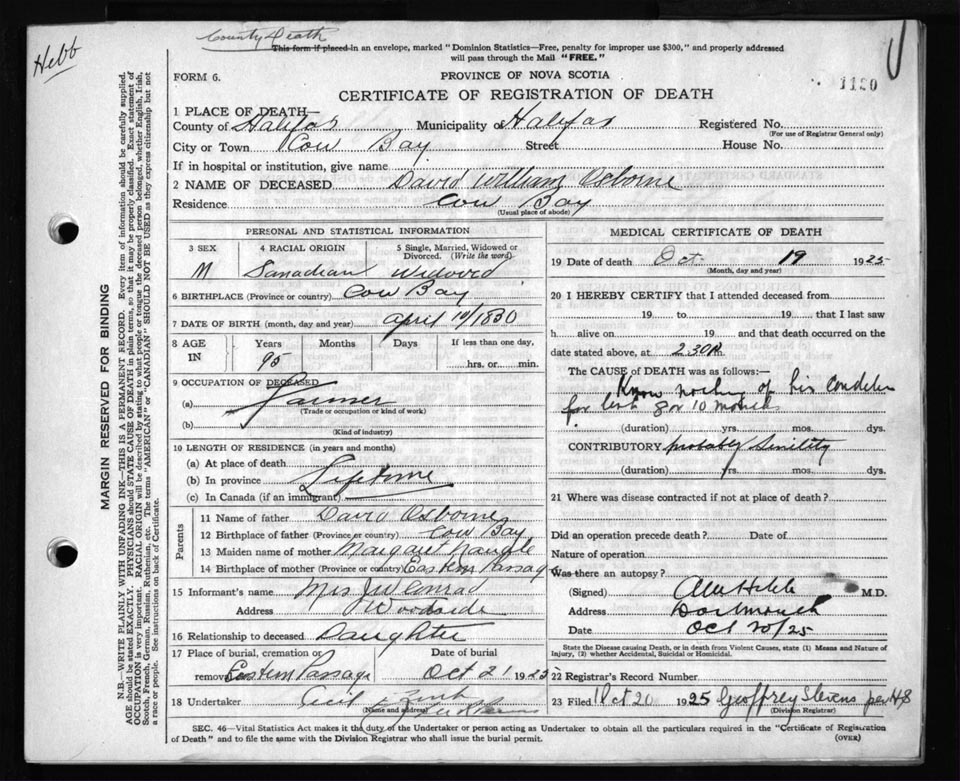 County Death
Hebb
This form if placed in an envelope, marked "Dominion Statistics—Free, penalty for improper use $300," and properly addressed
will pass through the Mail "FREE."
FORM 6.
PROVINCE OF NOVA SCOTIA
1120
CERTIFICATE OF REGISTRATION OF DEATH
1 PLACE OF DEATH—
County of Halifax Municipality of Halifax Registered No.
(For use of Registrar General only)
City or Town Cow Bay Street House No.
If in hospital or institution, give name
2 NAME OF DECEASED David William Osborne
Residence Cow Bay
(Usual place of abode)
PERSONAL AND STATISTICAL INFORMATION
3 SEX 4 RACIAL ORIGIN 5 Single, Married, Widowed or Divorced. (Write the word)
M Canadian Widowed
6 BIRTHPLACE (Province or country) Cow Bay
7 DATE OF BIRTH (month, day and year) April 10/1830
8 AGE IN Years Months Days If less than one day,
95 hrs. or min.
9 OCCUPATION OF DECEASED
(a) Farmer
(Trade or occupation or kind of work)
(b)
(Kind of industry)
10 LENGTH OF RESIDENCE (in years and months)
(a) At place of death
(b) In province Lifetime
(c) In Canada (if an immigrant)
Parents
11 Name of father David Osborne
12 Birthplace of father (Province or country) Cow Bay
13 Maiden name of mother Margaret
14 Birthplace of mother (Province or country) Eastern Passage
15 Informant's name Mrs J W Conrad
Address Woodside
16 Relationship to deceased Daughter
17 Place of burial, cremation or removal Date of burial
Eastern Passage Oct 21 1925
18 Undertaker Cecil
(Name and address)
MEDICAL CERTIFICATE OF DEATH
19 Date of death Oct 19 1925
(Month, day and year)
20 I HEREBY CERTIFY that I attended deceased from
19 to 19 that I last saw
h alive on 19 and that death occurred on
date stated above, at 2.30 m.
The CAUSE of DEATH was as follows:—
Know nothing of his condition
for last 9 or 10 months
(duration) yrs. mos. dys.
CONTRIBUTORY probably Senility
(duration) yrs. mos. dys.
21 Where was disease contracted if not at place of death?
Did an operation precede death? Date of
Nature of operation
Was there an autopsy?
(Signed) Hebb M.D.
Address Dartmouth
Date Oct 20/25
State the Disease causing Death, or in death from Violent Causes, state (1) Means and Nature of
Injury, (2) whether Accidental, Suicidal or Homicidal.
22 Registrar's Record Number
23 Filed Oct 20 1925 Geoffrey Stevens per HS
(Division Registrar)
SEC. 46—Vital Statistics Act makes it the duty of the Undertaker or person acting as Undertaker to obtain all the particulars required in the "Certificate of Registration
of Death" and to file the same with the Division Registrar who shall issue the burial permit.
(OVER)
MARGIN RESERVED FOR BINDING
N.B.—WRITE PLAINLY WITH UNFADING INK—THIS IS A PERMANENT RECORD. Every item of information should be carefully supplied.
AGE should be stated EXACTLY. PHYSICIANS should STATE CAUSE OF DEATH in plain terms, so that it may be properly classified. Exact statement of
OCCUPATION is very important. RACIAL ORIGIN will be described by stating to what people or tongue the deceased person belonged, whether English, Irish,
Scotch, French, German, Russian, Ruthenian, etc. The terms "AMERICAN" or "CANADIAN" SHOULD NOT BE USED as they express citizenship but not
a race or people. See instructions on back of Certificate.